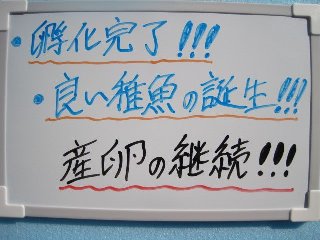 ・孵化完了!!!
・良い稚魚の誕生!!!
産卵の継続!!!